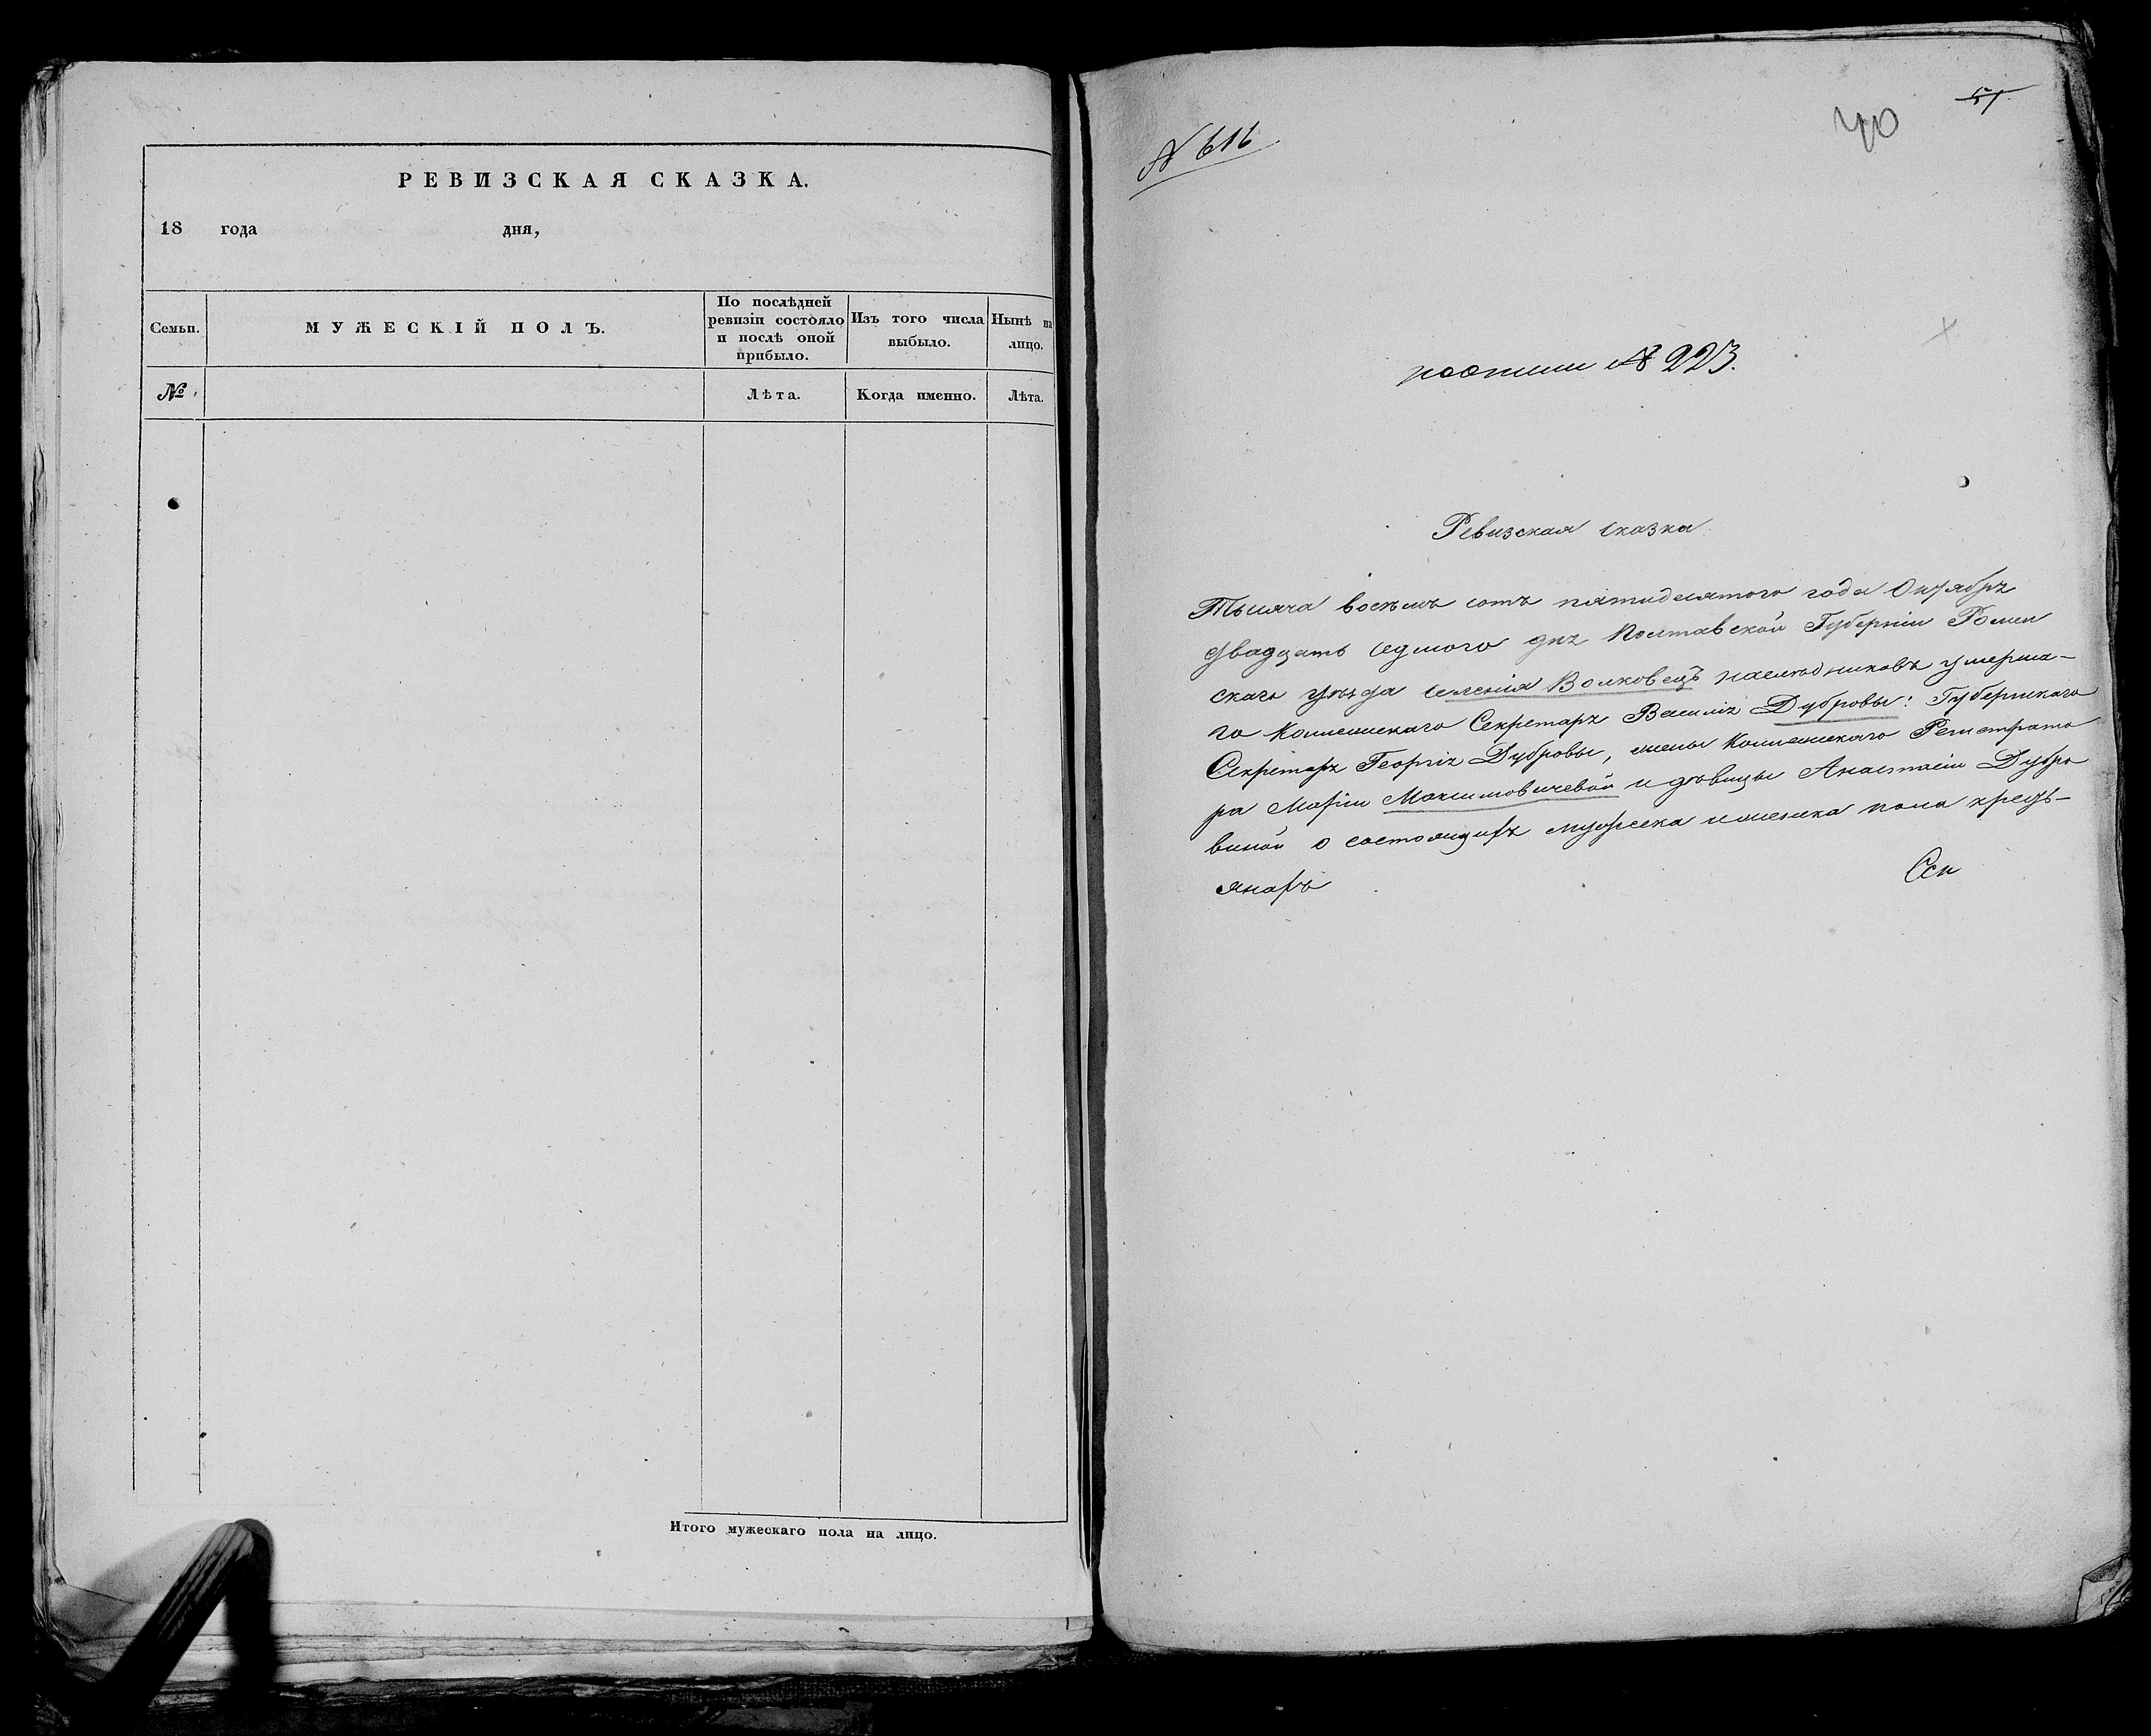 РЕВИЗСКАЯ СКАЗКА.
18 года дня,
Семьи.
МУЖЕСКІЙ ПОЛЪ.
По послѣдней
ревизіи состояло
и послѣ оной
прибыло.
Изъ того числа
выбыло.
Нынѣ на
лицо.
№
Лѣта.
Когда именно.
Лѣта.
Итого мужескаго пола на лицо.
51.
40
N 616
росписи № 223.
Ревизская сказка
Тысяча восемь сотъ пятидесятого года Октября
двадцать седмого дня Полтавской Губерніи Ромен
скаго уѣзда селенія Волковецъ наслѣдниковъ умерша-
го Коллежскаго Секретаря Василія Дубровы: Губернскаго
Секретаря Георгія Дубровы, жены Коллежскаго Регистрато
ра Маріи Максимовичевой и дѣвицы Анастасіи Дубро
виной о состоящихъ мужеска и женска пола кресть-
янахъ